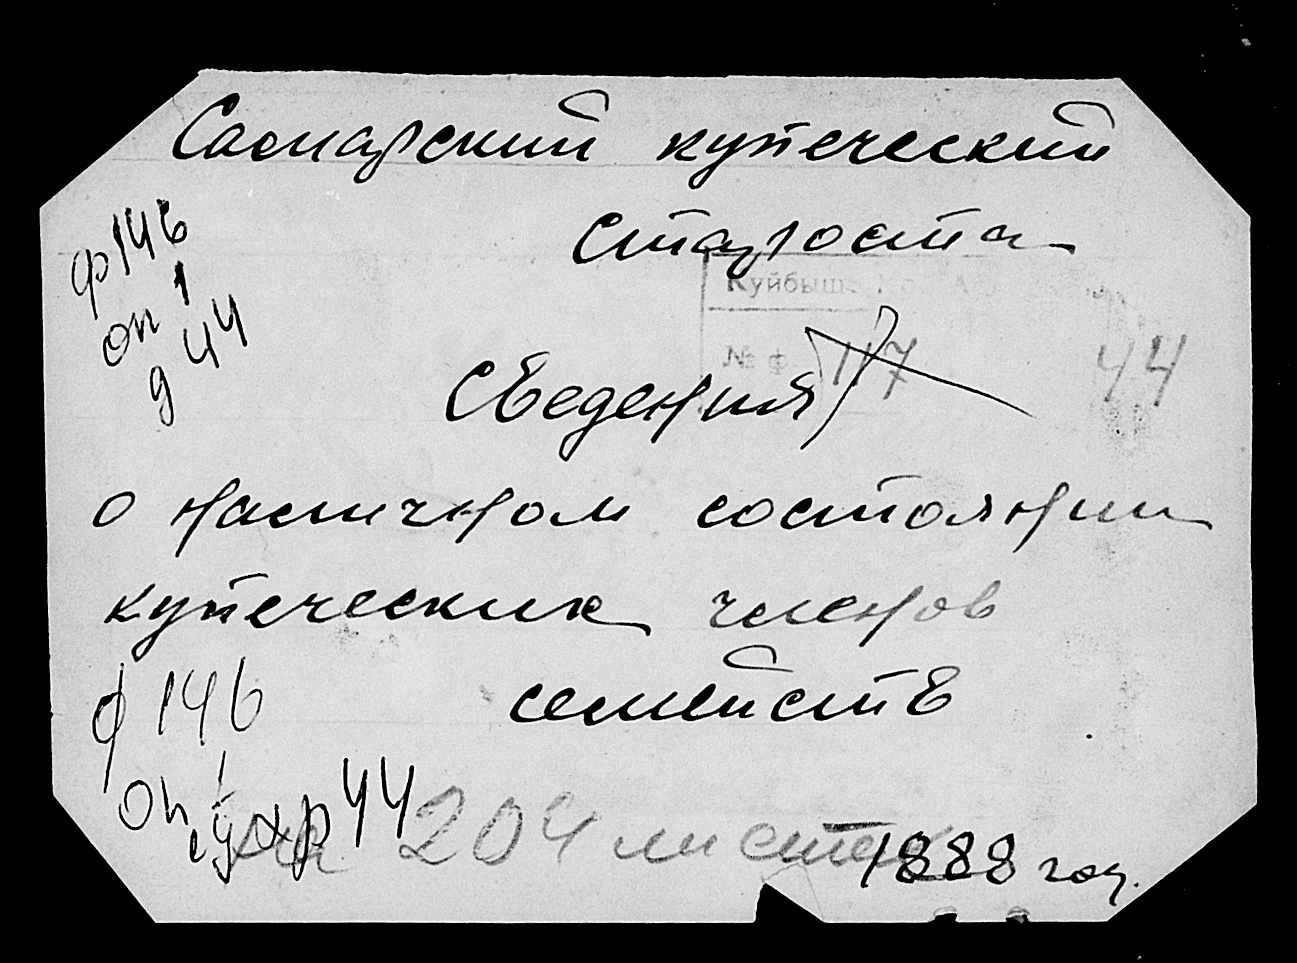 Самарский купеческий
староста
ф 146
оп 1
д 44
Куйбыш
№ ф 117
44
Сведения
о наличном состоянии
купеческих членов
семейств
ф 146
оп 1
ед хр 44
на 204 листах
1888 год.